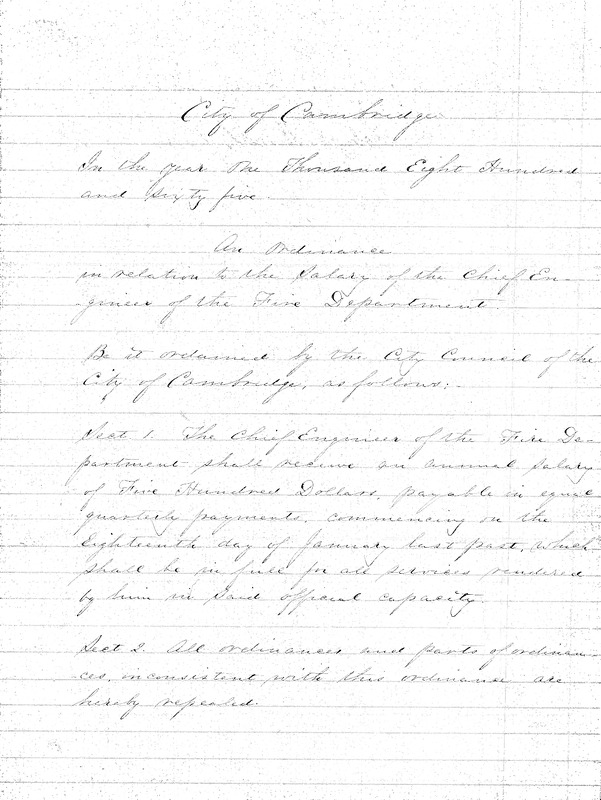 City of Cambridge
In the year One Thousand Eight Hundred
and sixty five.
An Ordinance
in relation to the Salary of the Chief En-
-gineer of the Fire Department.
Be it ordained by the City Council of the
City of Cambridge, as follows:-
Sect 1. The Chief Engineer of the Fire De-
partment shall receive an annual salary
of Five Hundred Dollars, payable in equal
quarterly payments, commencing on the
Eighteenth day of January last past, which
shall be in full for all services rendered
by him in said official capacity.
Sect 2. All ordinances and parts of ordinan-
ces, inconsistent with this ordinance are
hereby repealed.